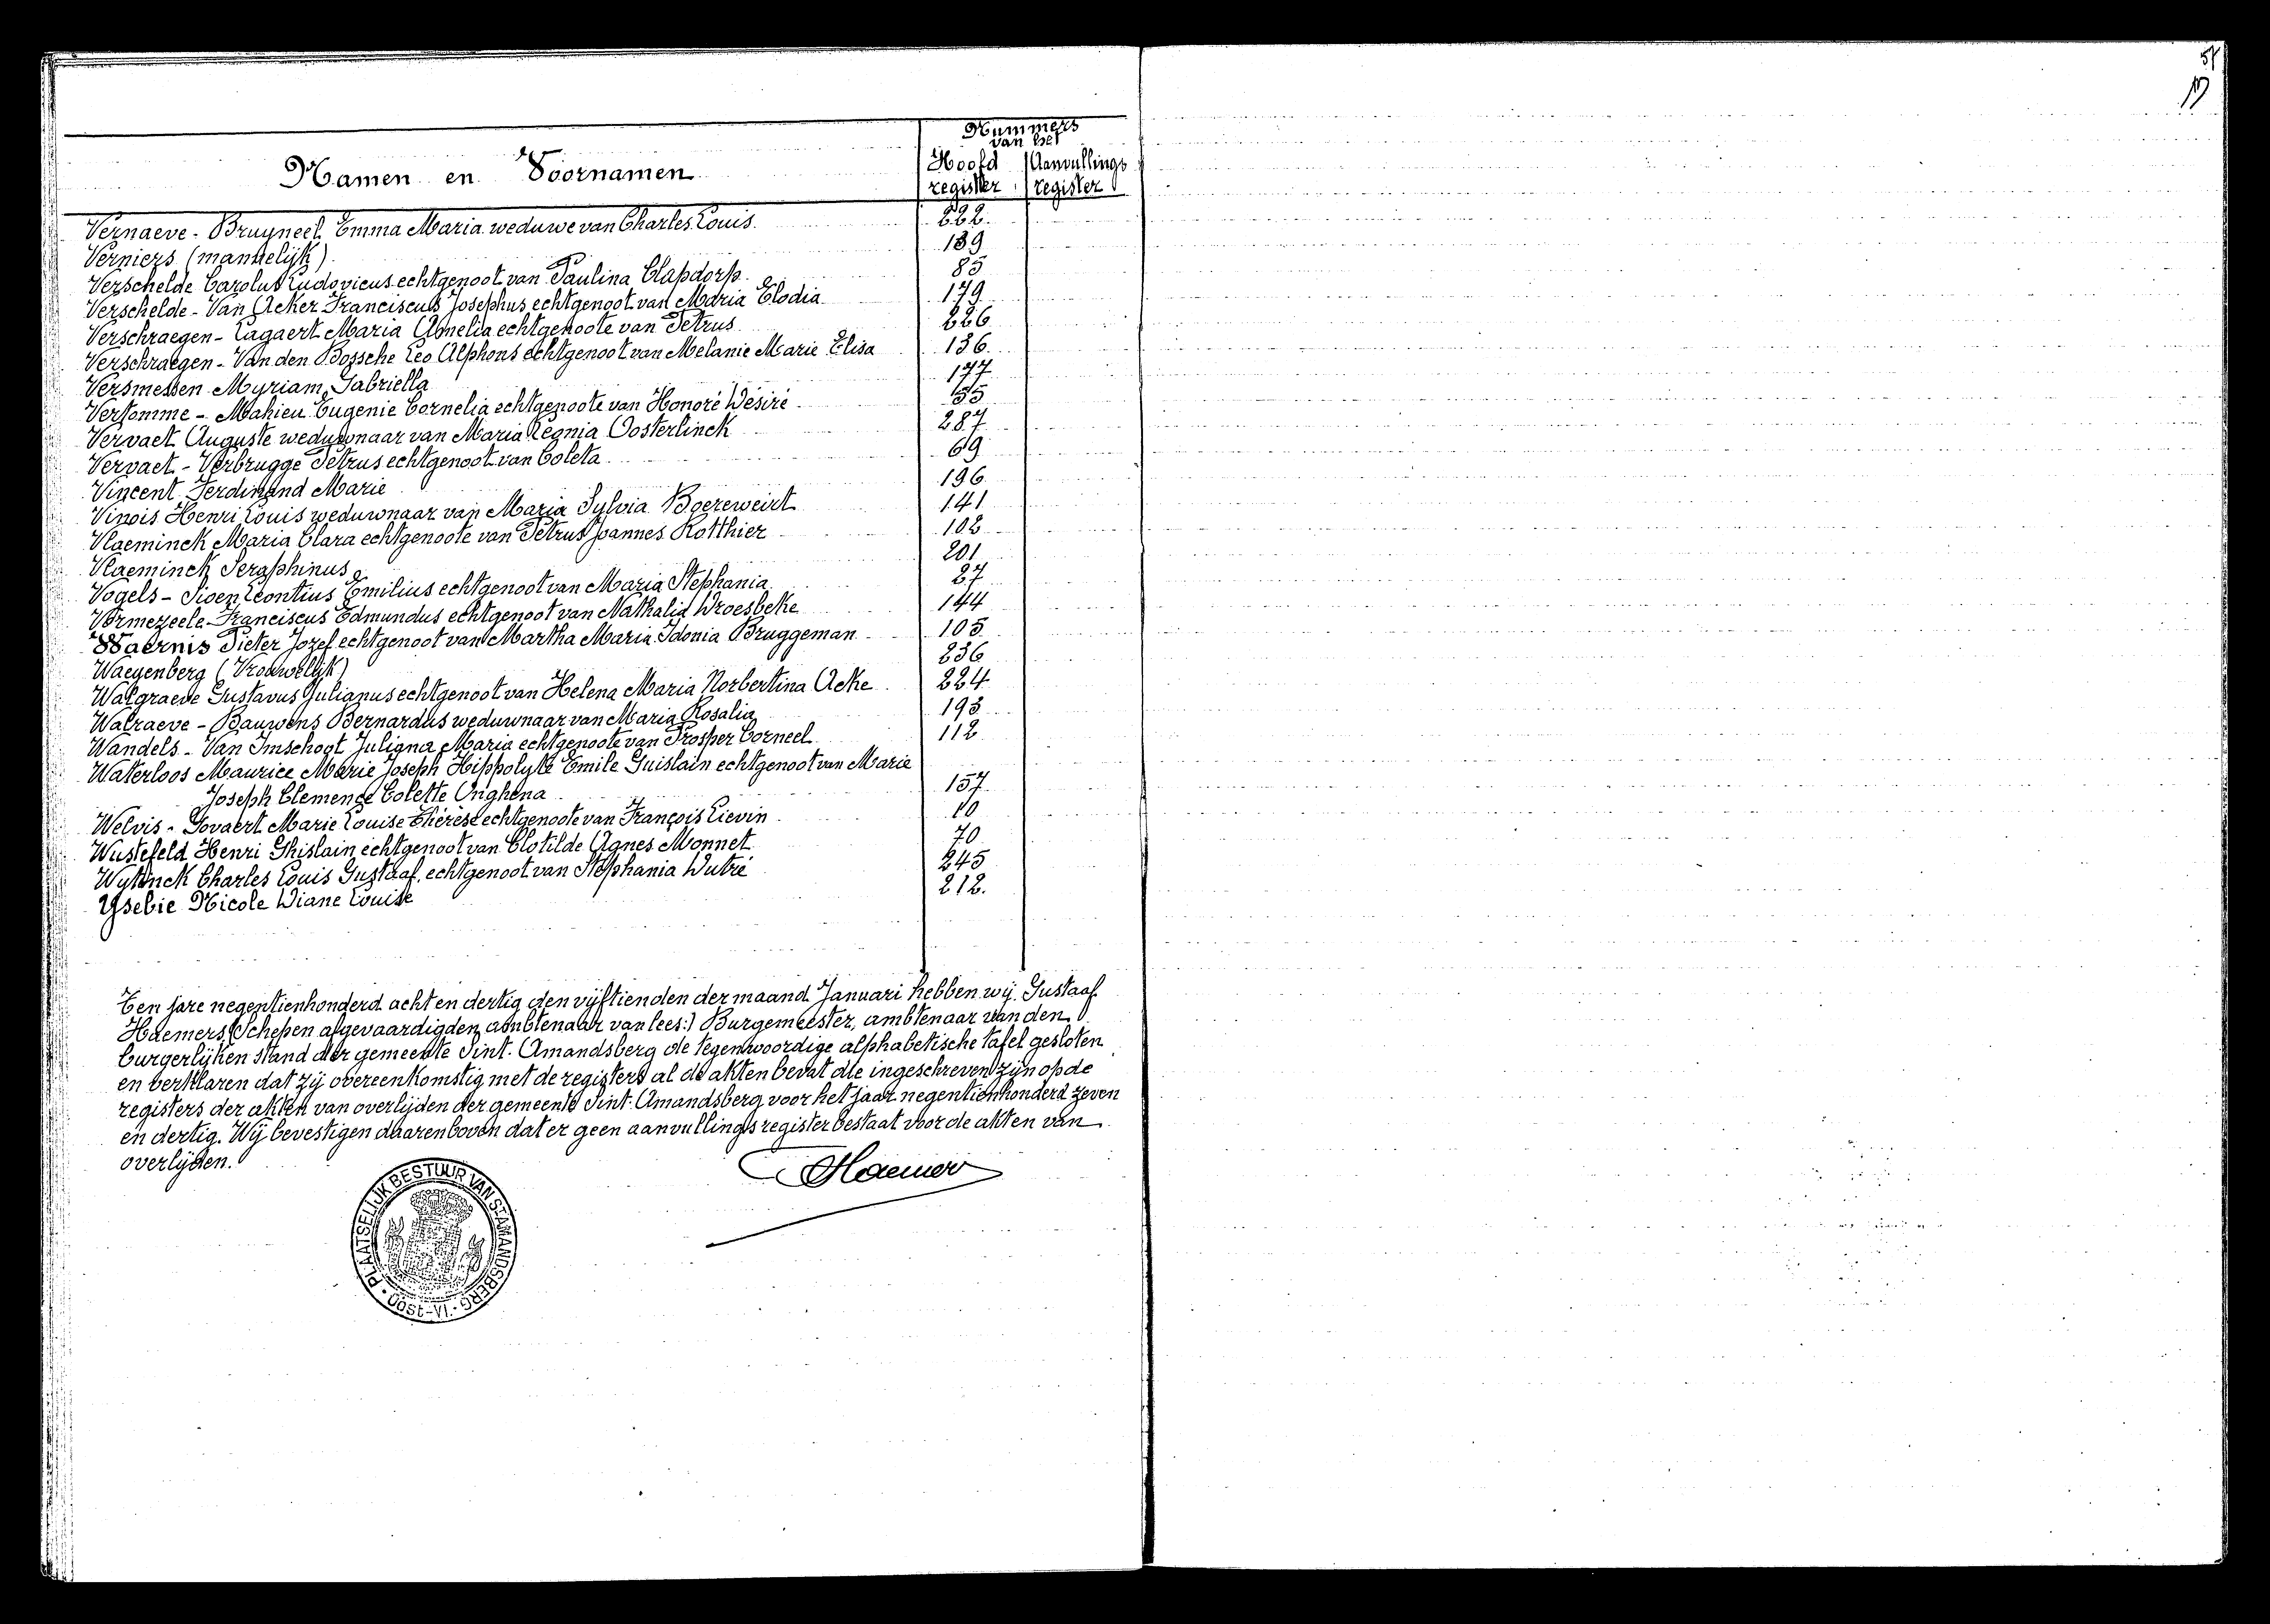 51
Nummers
van het
Namen en Voornamen
Hoofd register
Aanvullings register
Vernaeve - Bruyneel Emma Maria weduwe van Charles Louis 222.
Verniers (mannelijk) 139
Verschelde Carolus Ludovicus echtgenoot van Paulina Clapdorp 85
Verschelde - Van Acker Franciscus Josephus echtgenoot van Maria Elodia 179
Verschraegen - Lagaert Maria Amelia echtgenoote van Petrus 226
Verschraegen - Van den Bossche Leo Alphons echtgenoot van Melanie Marie Elisa 136
Versmessen Myriam Gabriella 177
Vertomme - Mahieu Eugenie Cornelia echtgenoote van Honoré Désiré 55
Vervaet Auguste weduwnaar van Maria Leonia Oosterlinck 287
Vervaet - Verbrugge Petrus echtgenoot van Coleta 69
Vincent Ferdinand Marie 196
Vinois Henri Louis weduwnaar van Maria Sylvia Boereweirt 141
Vlaeminck Maria Clara echtgenoote van Petrus Joannes Rotthier 102
Vlaeminck Seraphinus 201
Vogels - Sioen Leontius Emilius echtgenoot van Maria Stephania 27
Vormezeele Franciscus Edmundus echtgenoot van Nathalia Droesbeke 144
Waernis Pieter Jozef echtgenoot van Martha Maria Idonia Bruggeman 105
Waeyenberg (Vrouwelijk) 236
Walgraeve Gustavus Julianus echtgenoot van Helena Maria Norbertina Acke 224
Walraeve - Bauwens Bernardus weduwnaar van Maria Rosalia 193
Wandels - Van Imschoot Juliana Maria echtgenoote van Prosper Corneel 112
Waterloos Maurice Marie Joseph Hippolyte Emile Guislain echtgenoot van Marie
Joseph Clemence Colette Onghena 157
Welvis - Govaert Marie Louise Thérèse echtgenoote van François Lievin 10
Wustefeld Henri Ghislain echtgenoot van Clotilde Agnes Monnet 70
Wytinck Charles Louis Gustaaf echtgenoot van Stephania Dutré 245
Ysebie Nicole Diane Louise 212.
Ten jare negentienhonderd acht en dertig den vijftienden der maand Januari hebben wij Gustaaf
Haemers (Schepen afgevaardigden ambtenaar van lees:) Burgemeester, ambtenaar van den
burgerlijken stand der gemeente Sint-Amandsberg de tegenwoordige alphabetische tafel gesloten
en verklaren dat zij overeenkomstig met de registers al de akten bevat die ingeschreven zijn op de
registers der akten van overlijden der gemeente Sint-Amandsberg voor het jaar negentienhonderd zeven
en dertig. Wij bevestigen daarenboven dat er geen aanvullingsregister bestaat voor de akten van
overlijden.
Haemers
PLAATSELIJK BESTUUR VAN ST AMANDSBERG
Oost-Vl.